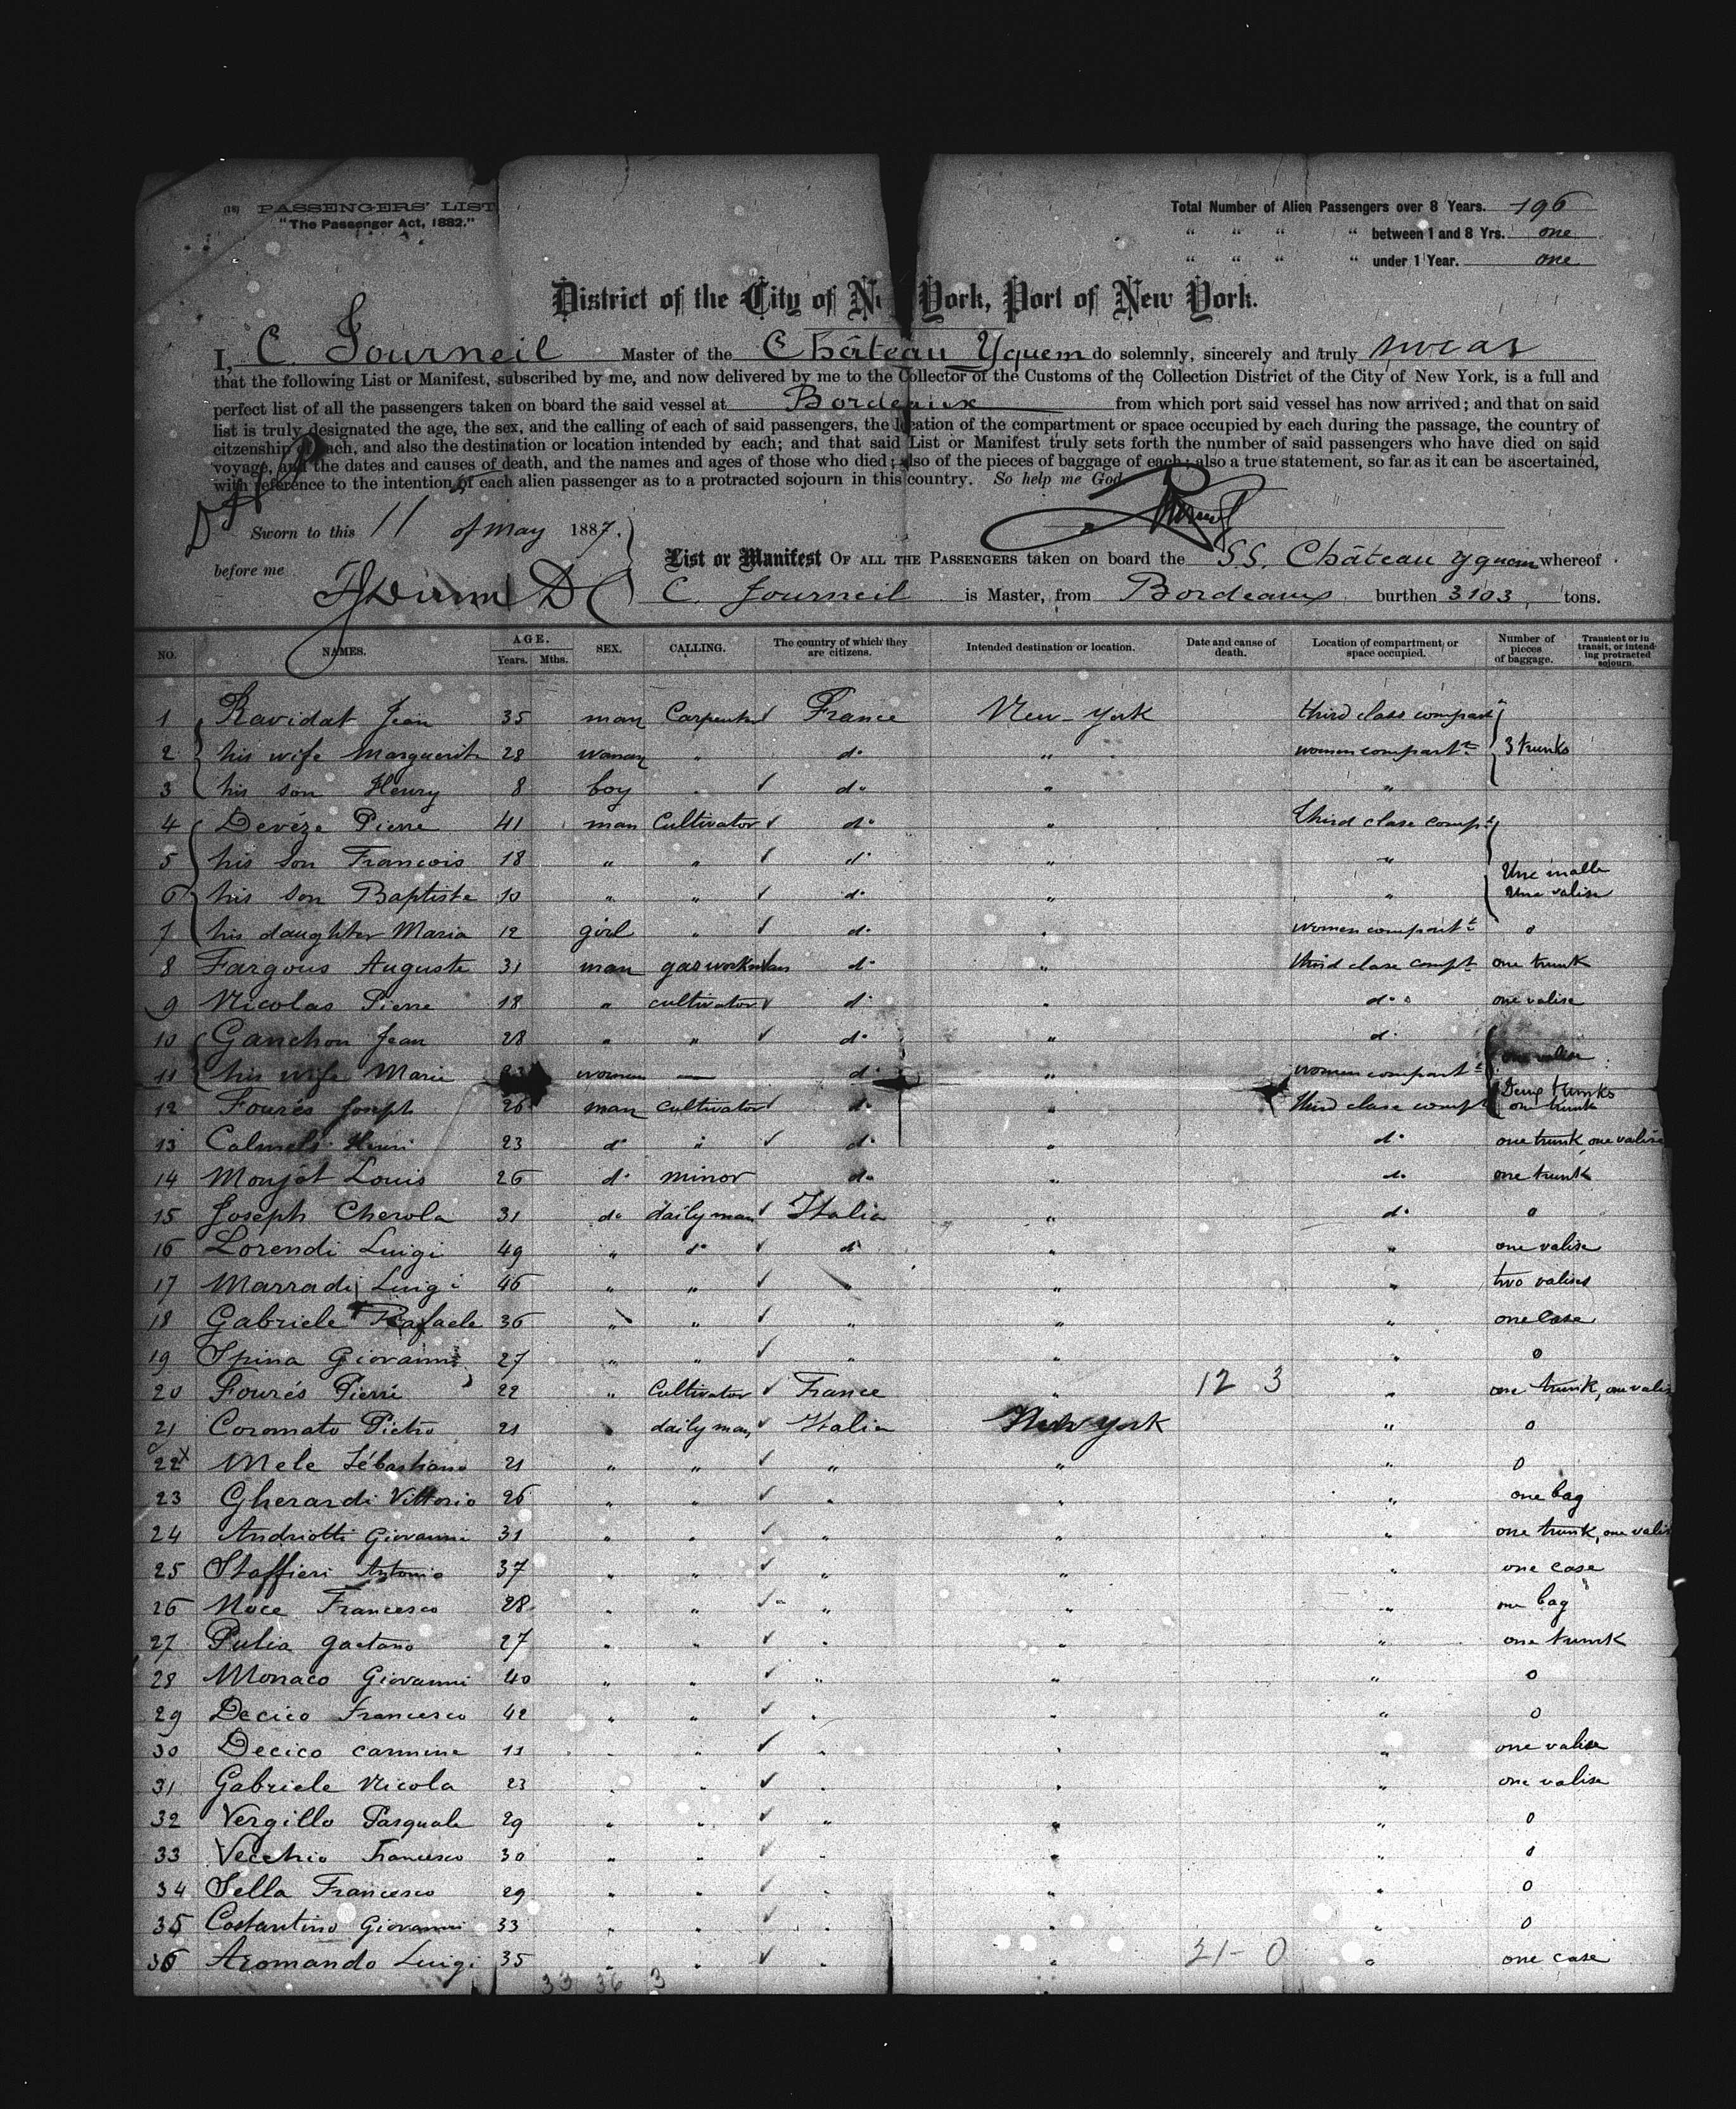 (18) PASSENGERS' LIST
"The Passenger Act, 1882."
Total Number of Alien Passengers over 8 Years. 196
" " " " between 1 and 8 Yrs. one
" " " " under 1 Year. one
District of the City of New York, Port of New York.
I, C. Journeil Master of the Château Yquem do solemnly, sincerely and truly swear
that the following List or Manifest, subscribed by me, and now delivered by me to the Collector of the Customs of the Collection District of the City of New York, is a full and
perfect list of all the passengers taken on board the said vessel at Bordeaux from which port said vessel has now arrived; and that on said
list is truly designated the age, the sex, and the calling of each of said passengers, the location of the compartment or space occupied by each during the passage, the country of
citzenship of each, and also the destination or location intended by each; and that said List or Manifest truly sets forth the number of said passengers who have died on said
voyage, and the dates and causes of death, and the names and ages of those who died; also of the pieces of baggage of each; also a true statement, so far as it can be ascertained,
with reference to the intention of each alien passenger as to a protracted sojourn in this country. So help me God
Sworn to this 11 of May 1887.
before me
List or Manifest OF ALL THE PASSENGERS taken on board the S.S. Château Yquem whereof
C. Journeil is Master, from Bordeaux burthen 3103 tons.
NO. NAMES. AGE. Years. Mths. SEX. CALLING. The country of which they are citizens. Intended destination or location. Date and cause of death. Location of compartment or space occupied. Number of pieces of baggage. Transient or in transit, or intending protracted sojourn.
1 Ravidat Jean 35 man Carpenter France New-York third class compart
2 his wife Marguerite 28 woman " do " women compartt 3 trunks
3 his son Henry 8 boy " do " "
4 Devéze Pierre 41 man Cultivator do " third clase compt
5 his son Francois 18 " " d° " "
6 his son Baptiste 10 " " do " " Une malle Une valise
7 his daughter Maria 12 girl " do " women compartt 0
8 Fargous Auguste 31 man gasworkman do " third clase compt one trunk
9 Nicolas Pierre 18 " cultivator do " do one valise
10 Ganchon Jean 28 " " do " do one valise
11 his wife Marie women — do " women compartt Deux trunks
12 Fourés Joseph 26 man cultivator do " third clase compt one trunk
13 Calmels Henri 23 do " do " do one trunk one valise
14 Monjot Louis 26 do minor do " do one trunk
15 Joseph Cherola 31 do daily man Italia " do 0
16 Lorendi Luigi 49 " do do " " one valise
17 Marradi Luigi 46 " " " " " two valises
18 Gabriele Rafaele 36 " " " " " one case
19 Spina Giovanni 27 " " " " " 0
20 Fourés Pierre 22 " Cultivator France " 12 3 " one trunk, one valise
21 Coromato Pietro 21 " daily man Italia New York " 0
22 x Mele Sébastiano 21 " " " " " 0
23 Gherardi Vittorio 26 " " " " " one bag
24 Andriotti Giovanni 31 " " " " " one trunk, one valise
25 Staffieri Antonio 37 " " " " " one case
26 Noce Francesco 28 " " " " " one bag
27 Pulia gaetano 27 " " " " " one trunk
28 Monaco Giovanni 40 " " " " " 0
29 Decico Francesco 42 " " " " " 0
30 Decico carmine 11 " " " " " one valise
31 Gabriele Nicola 23 " " " " " one valise
32 Vergillo Pasquale 29 " " " " " 0
33 Vecchio Francesco 30 " " " " " 0
34 Sella Francesco 29 " " " " " 0
35 Costantino Giovanni 33 " " " " " 0
36 Aromando Luigi 35 " " " " 21-0 " one case
33 36 3